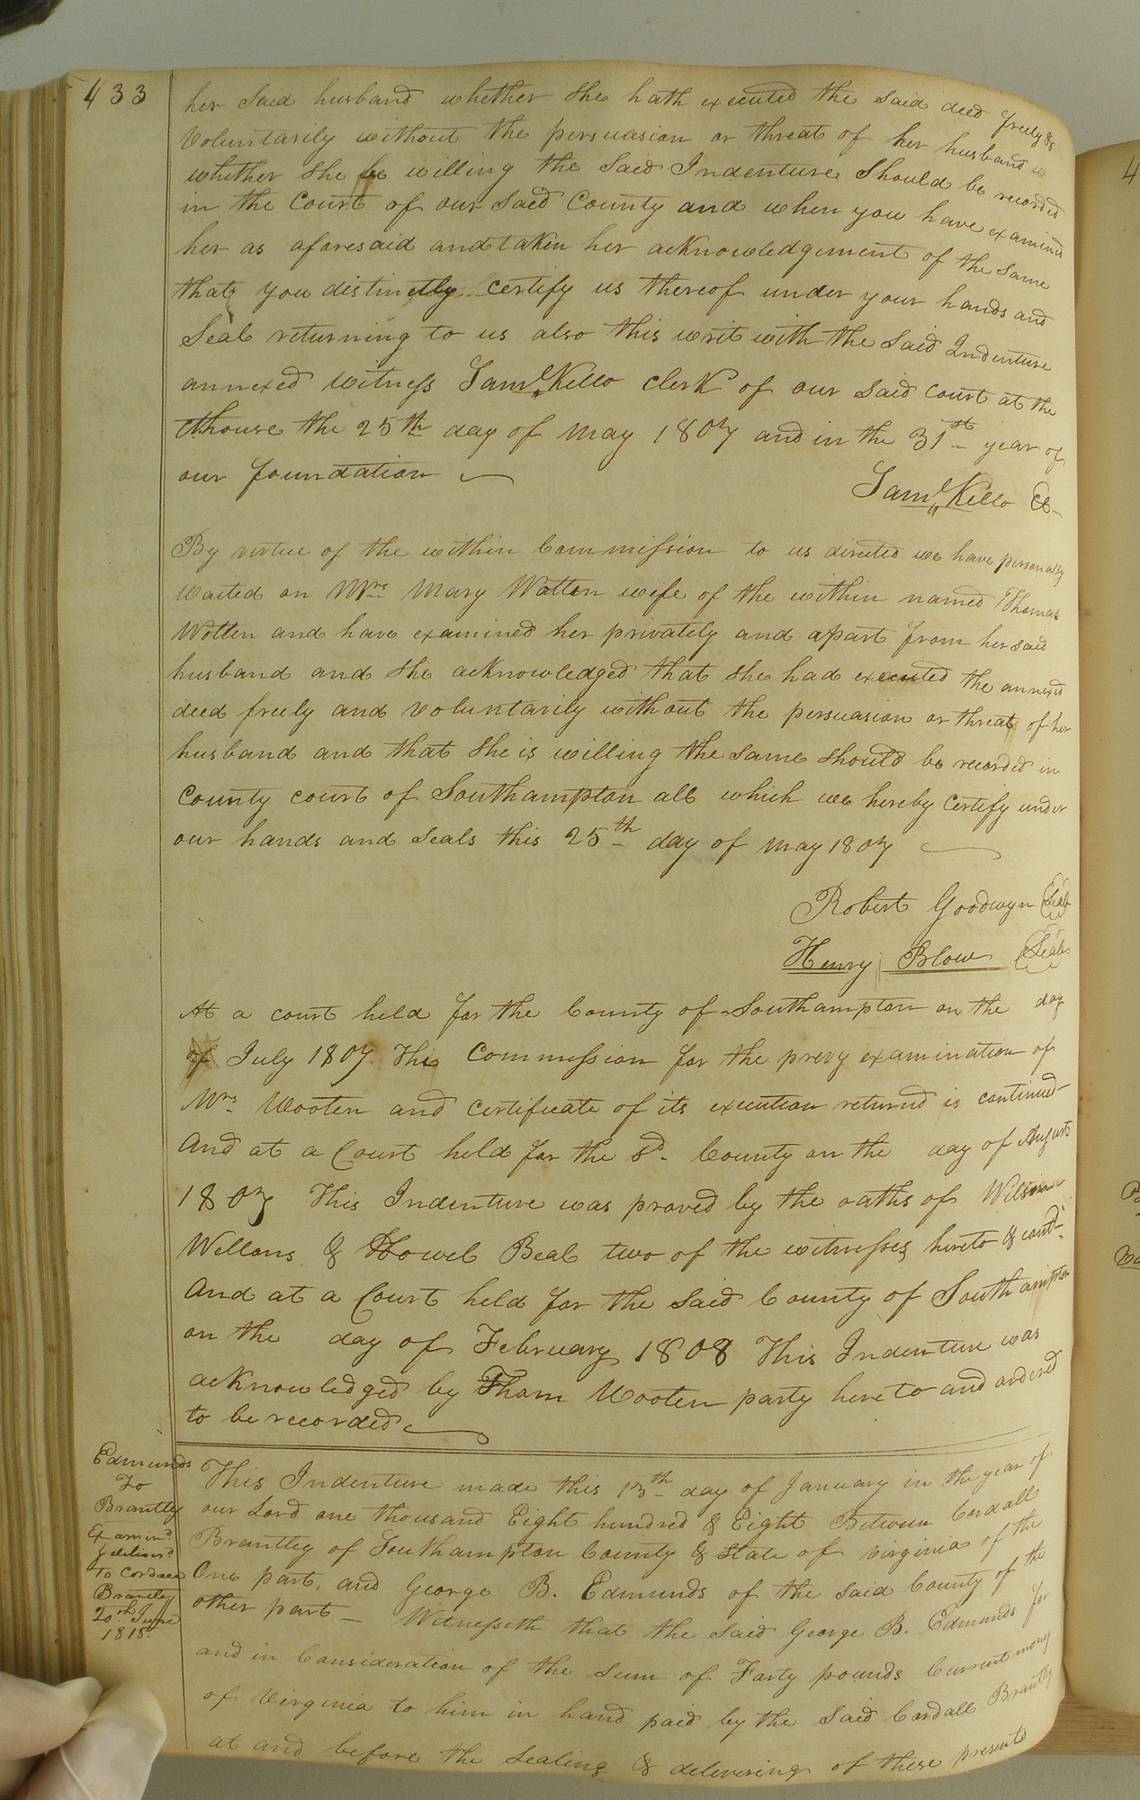 433
her Said husband whether she hath executed the said deed freely &
Voluntarily without the persuasion or threat of her husband &
whether she be willing the Said Indenture Should be recorded
in the Court of our Said County and when you have examined
her as aforesaid and taken her acknowledgement of the same
that you distinctly certify us thereof under your hands and
Seal returning to us also this writ with the Said Indenture
annexed Witness Saml Kello Clerk of our Said Court at the
Cthouse the 25th day of may 1807 and in the 31st year of
our foundation
Saml Kello Cl
By virtue of the within Commission to us directed we have personally
Waited on Mrs Mary Wotten wife of the within named Thomas
Wotten and have examined her privately and apart from her said
husband and She acknowledged that she had executed the annexed
deed freely and voluntarily without the persuasion or threat of her
husband and that She is willing the same should be recorded in
County court of Southampton all which we hereby certify under
our hands and seals this 25th day of may 1807
Robert Goodwyn Seal
Henry Blow Seal
At a court held for the County of Southampton on the day
of July 1807. This Commission for the prevy examination of
Mrs Wooten and Certificate of its execution returnd is continued
And at a Court held for the Sd. County on the day of August
1807 This Indenture was proved by the oaths of Wilson
Wellons & Howel Beal two of the witnesses hereto & contd.
And at a Court held for the Said County of Southampton
on the day of February 1808 This Indenture was
acknowledged by Thom Wooten party hereto and ordered
to be recorded
Edmunds
To
Brantley
Examind
& deliverd
To Cordall
Brantley
20th June
1818.
This Indenture made this 13th day of January in the year of
our Lord one thousand Eight hundred & Eight Between Cordall
Brantley of Southampton County & State of Virginia of the
One part, and George B. Edmunds of the said County of the
other part Witnesseth that the said George B. Edmunds for
and in Consideration of the Sum of Forty pounds Current money
of Virginia to him in hand paid by the Said Cordall Brantley
at and before the Sealing & delivering of these presents